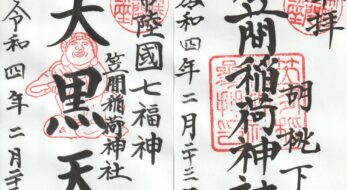 拝 胡桃下
笠間稲荷神社
令和四年二月二十三
常陸國七福神
笠間稲荷神社
大黒天
令和四年二月二十